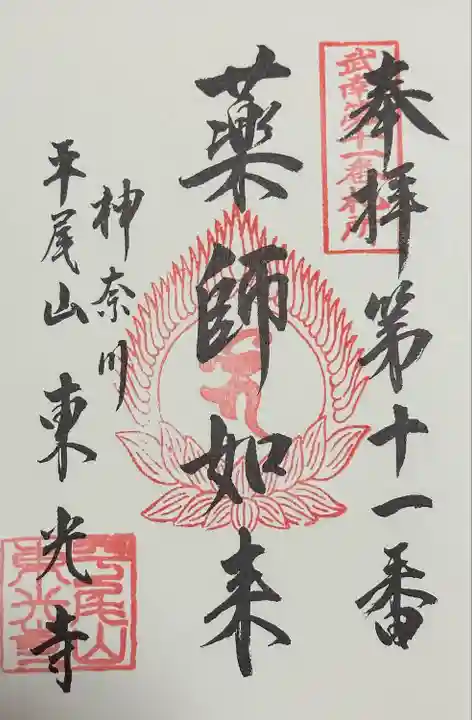 奉拝第十一番
武南第十一番札所
薬師如来
神奈川
平尾山 東光寺
平尾山
東光寺